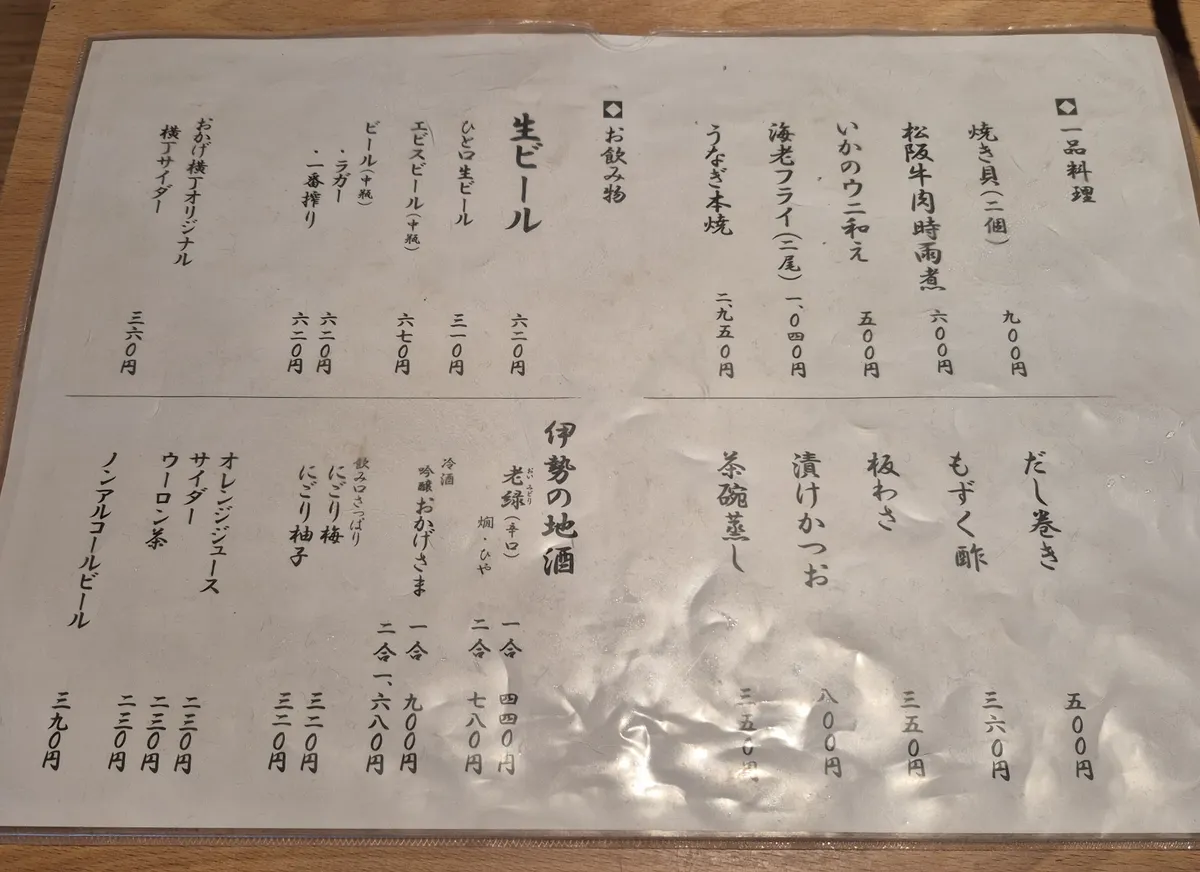 ◆一品料理
焼き貝(二個) 九〇〇円
松阪牛肉時雨煮 六〇〇円
いかのウニ和え 五〇〇円
海老フライ(二尾) 一、〇四〇円
うなぎ本焼 二、九五〇円
だし巻き 五〇〇円
もずく酢 三六〇円
板わさ 三五〇円
漬けかつお 八〇〇円
茶碗蒸し 三五〇円
◆お飲み物
生ビール 六二〇円
ひと口生ビール 三一〇円
エビスビール(中瓶) 六七〇円
ビール(中瓶)
・ラガー 六二〇円
・一番搾り 六二〇円
おかげ横丁オリジナル
横丁サイダー 三六〇円
伊勢の地酒
老緑(辛口) 一合 四四〇円
おいみどり
燗・ひや 二合 七八〇円
冷酒
吟醸 おかげさま 一合 九〇〇円
二合 一、六八〇円
飲み口さっぱり
にごり梅 三二〇円
にごり柚子 三二〇円
オレンジジュース 二三〇円
サイダー 二三〇円
ウーロン茶 二三〇円
ノンアルコールビール 三九〇円